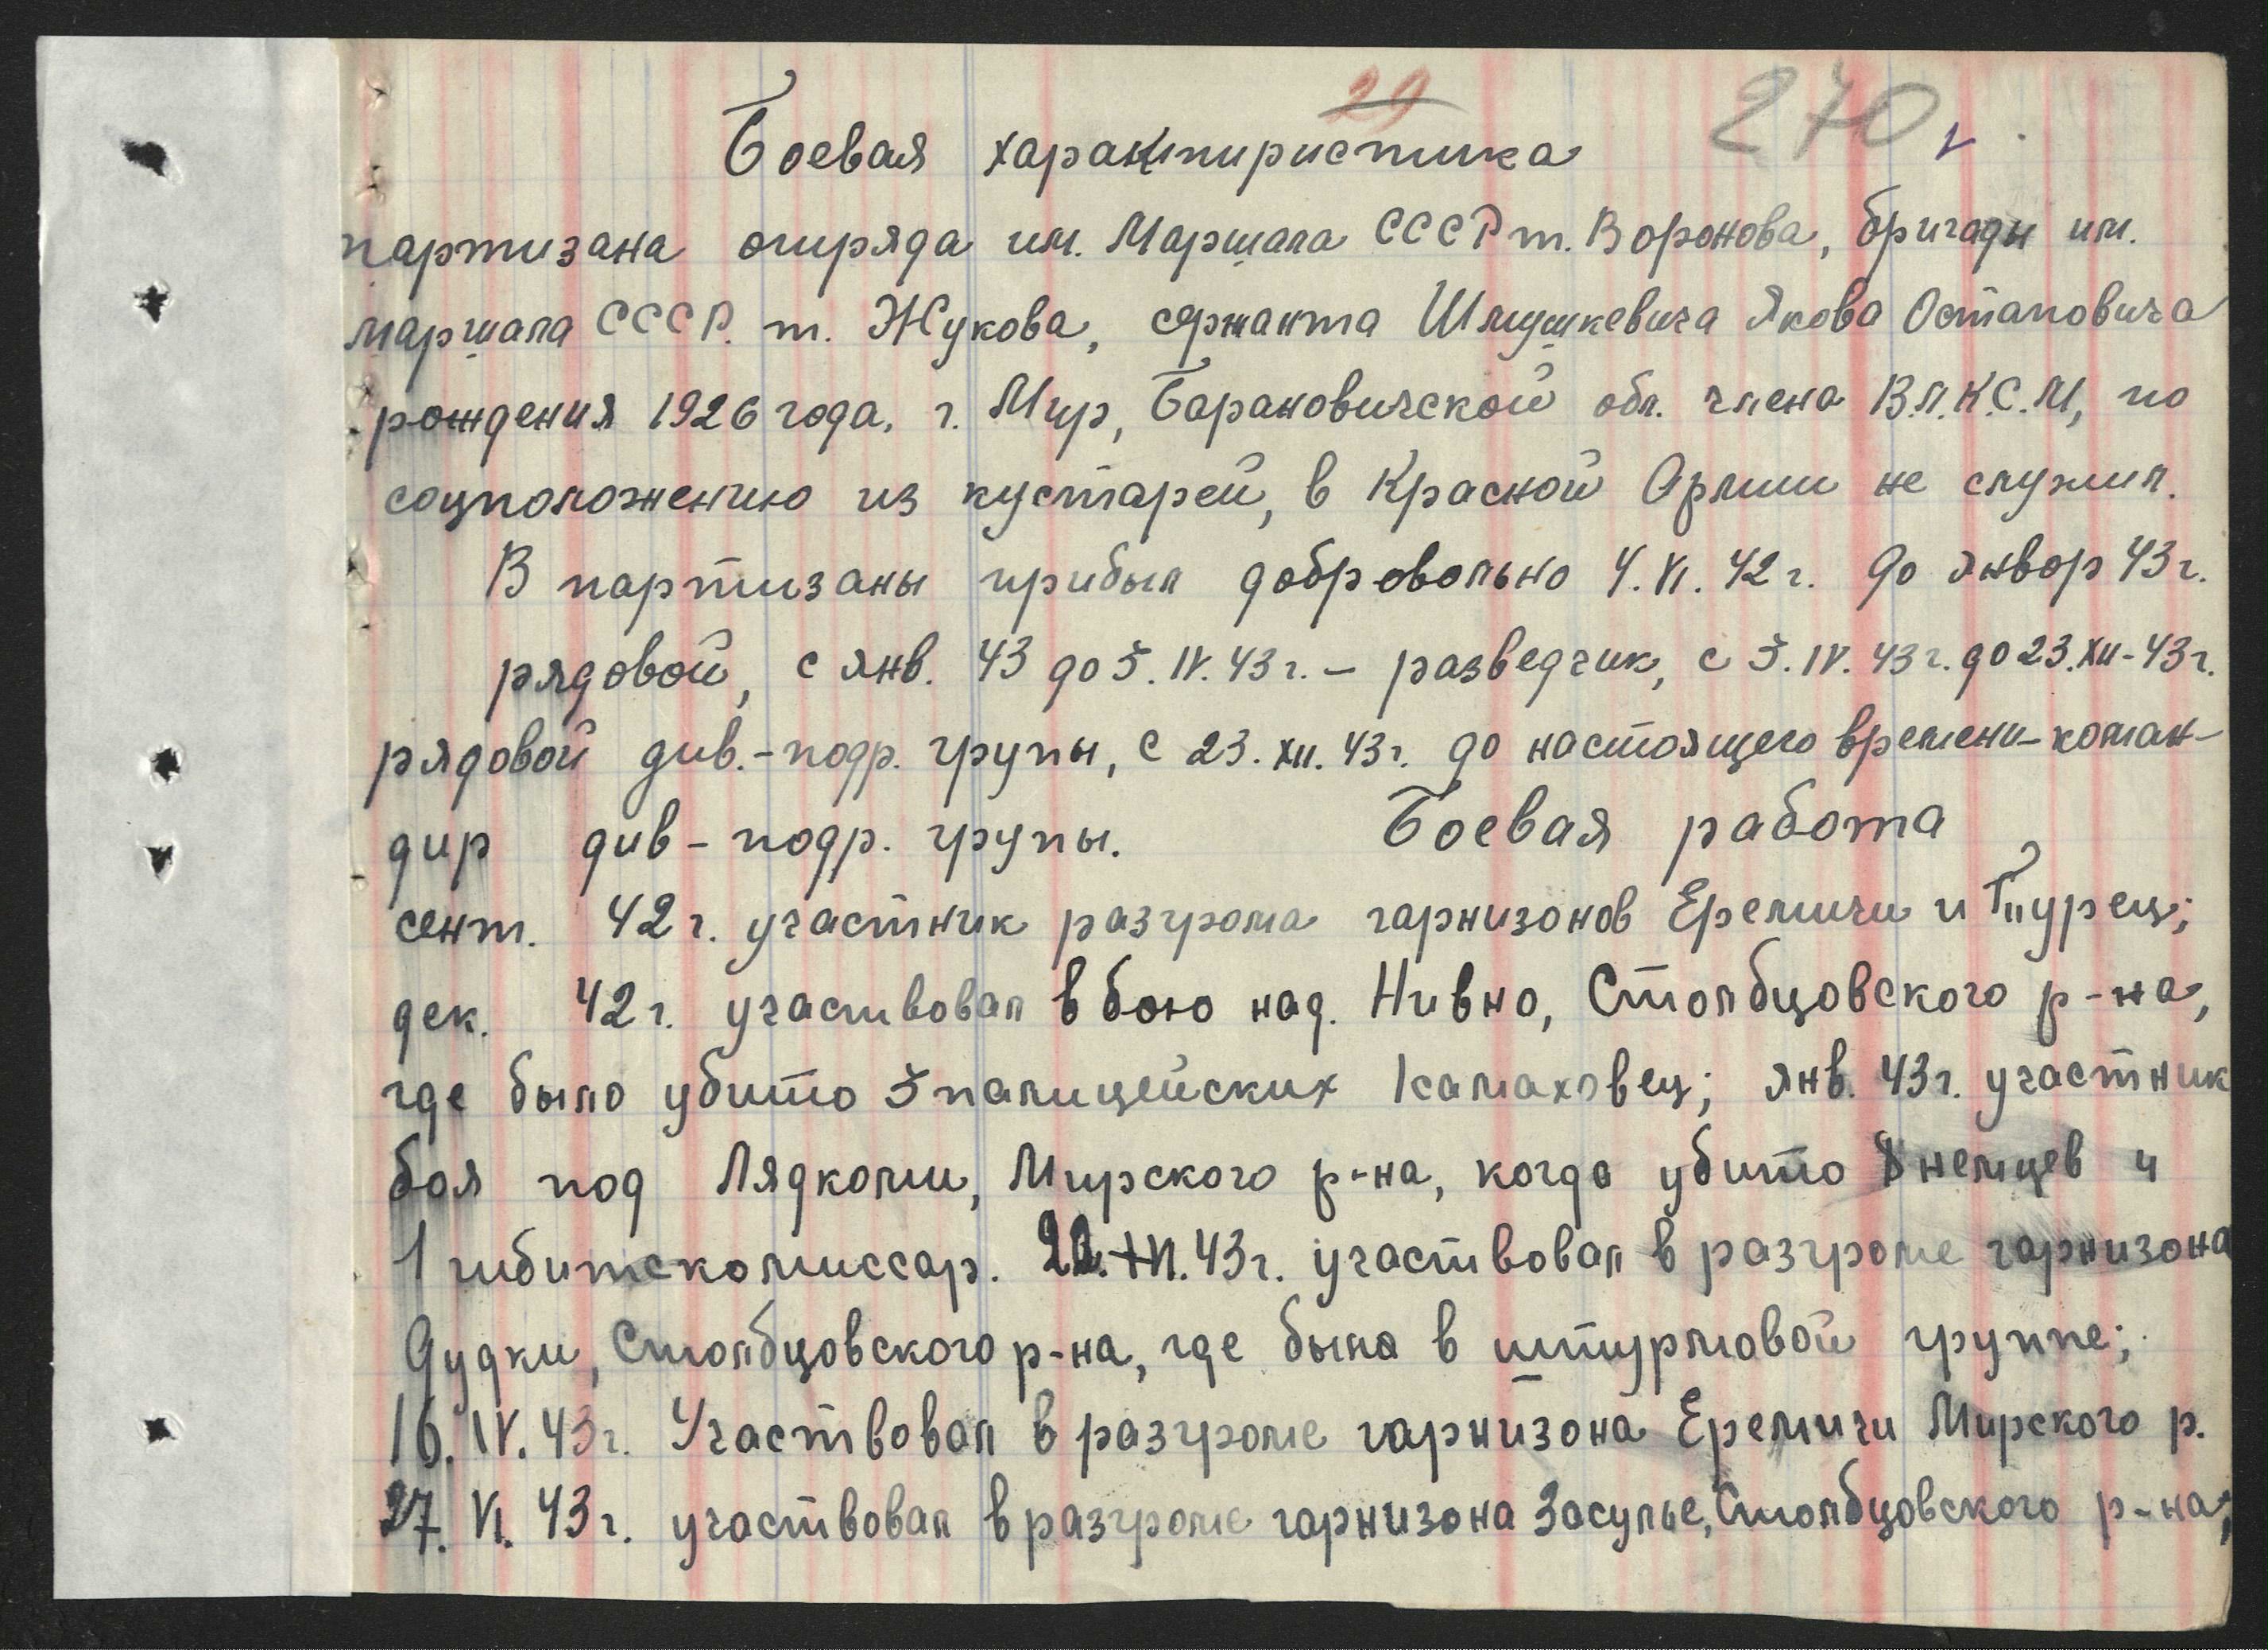 29
270
Боевая характиристика
партизана отряда им. Маршала СССР т. Воронова, бригады им.
маршала СССР. т. Жукова, сержанта Шмушкевича Якова Остаповича
рождения 1926 года, г. Мир, Барановичской обл. члена В.Л.К.С.М, по
соцположению из кустарей, в Красной Армии не служил.
В партизаны прибыл добровольно 4.VI.42 г. До январ 43 г.
рядовой, с янв. 43 до 5.IV.43 г. – разведчик, с 5.IV.43 г. до 23.XII-43 г.
рядовой див.-подр. групы, с 23.XII.43 г. до настоящего времени – коман-
дир див-подр. групы. Боевая работа
сент. 42 г. участник разгрома гарнизонов Еремичи и Турец;
дек. 42 г. участвовал в бою над. Нивно, Столбцовского р-на,
где было убито 5 палицейских Камаховец; янв. 43 г. участник
боя под Лядками, Мирского р-на, когда убито 8 немцев и
1 гибитскомиссар. 43 г. участвовал в разгроме гарнизона
Дудки, Столбцовского р-на, где была в штурмовой группе;
16.IV.43 г. Участвовал в разгроме гарнизона Еремичи Мирского р.
27.VI.43 г. участвовал в разгроме гарнизона Засулье, Столбцовского р-на;